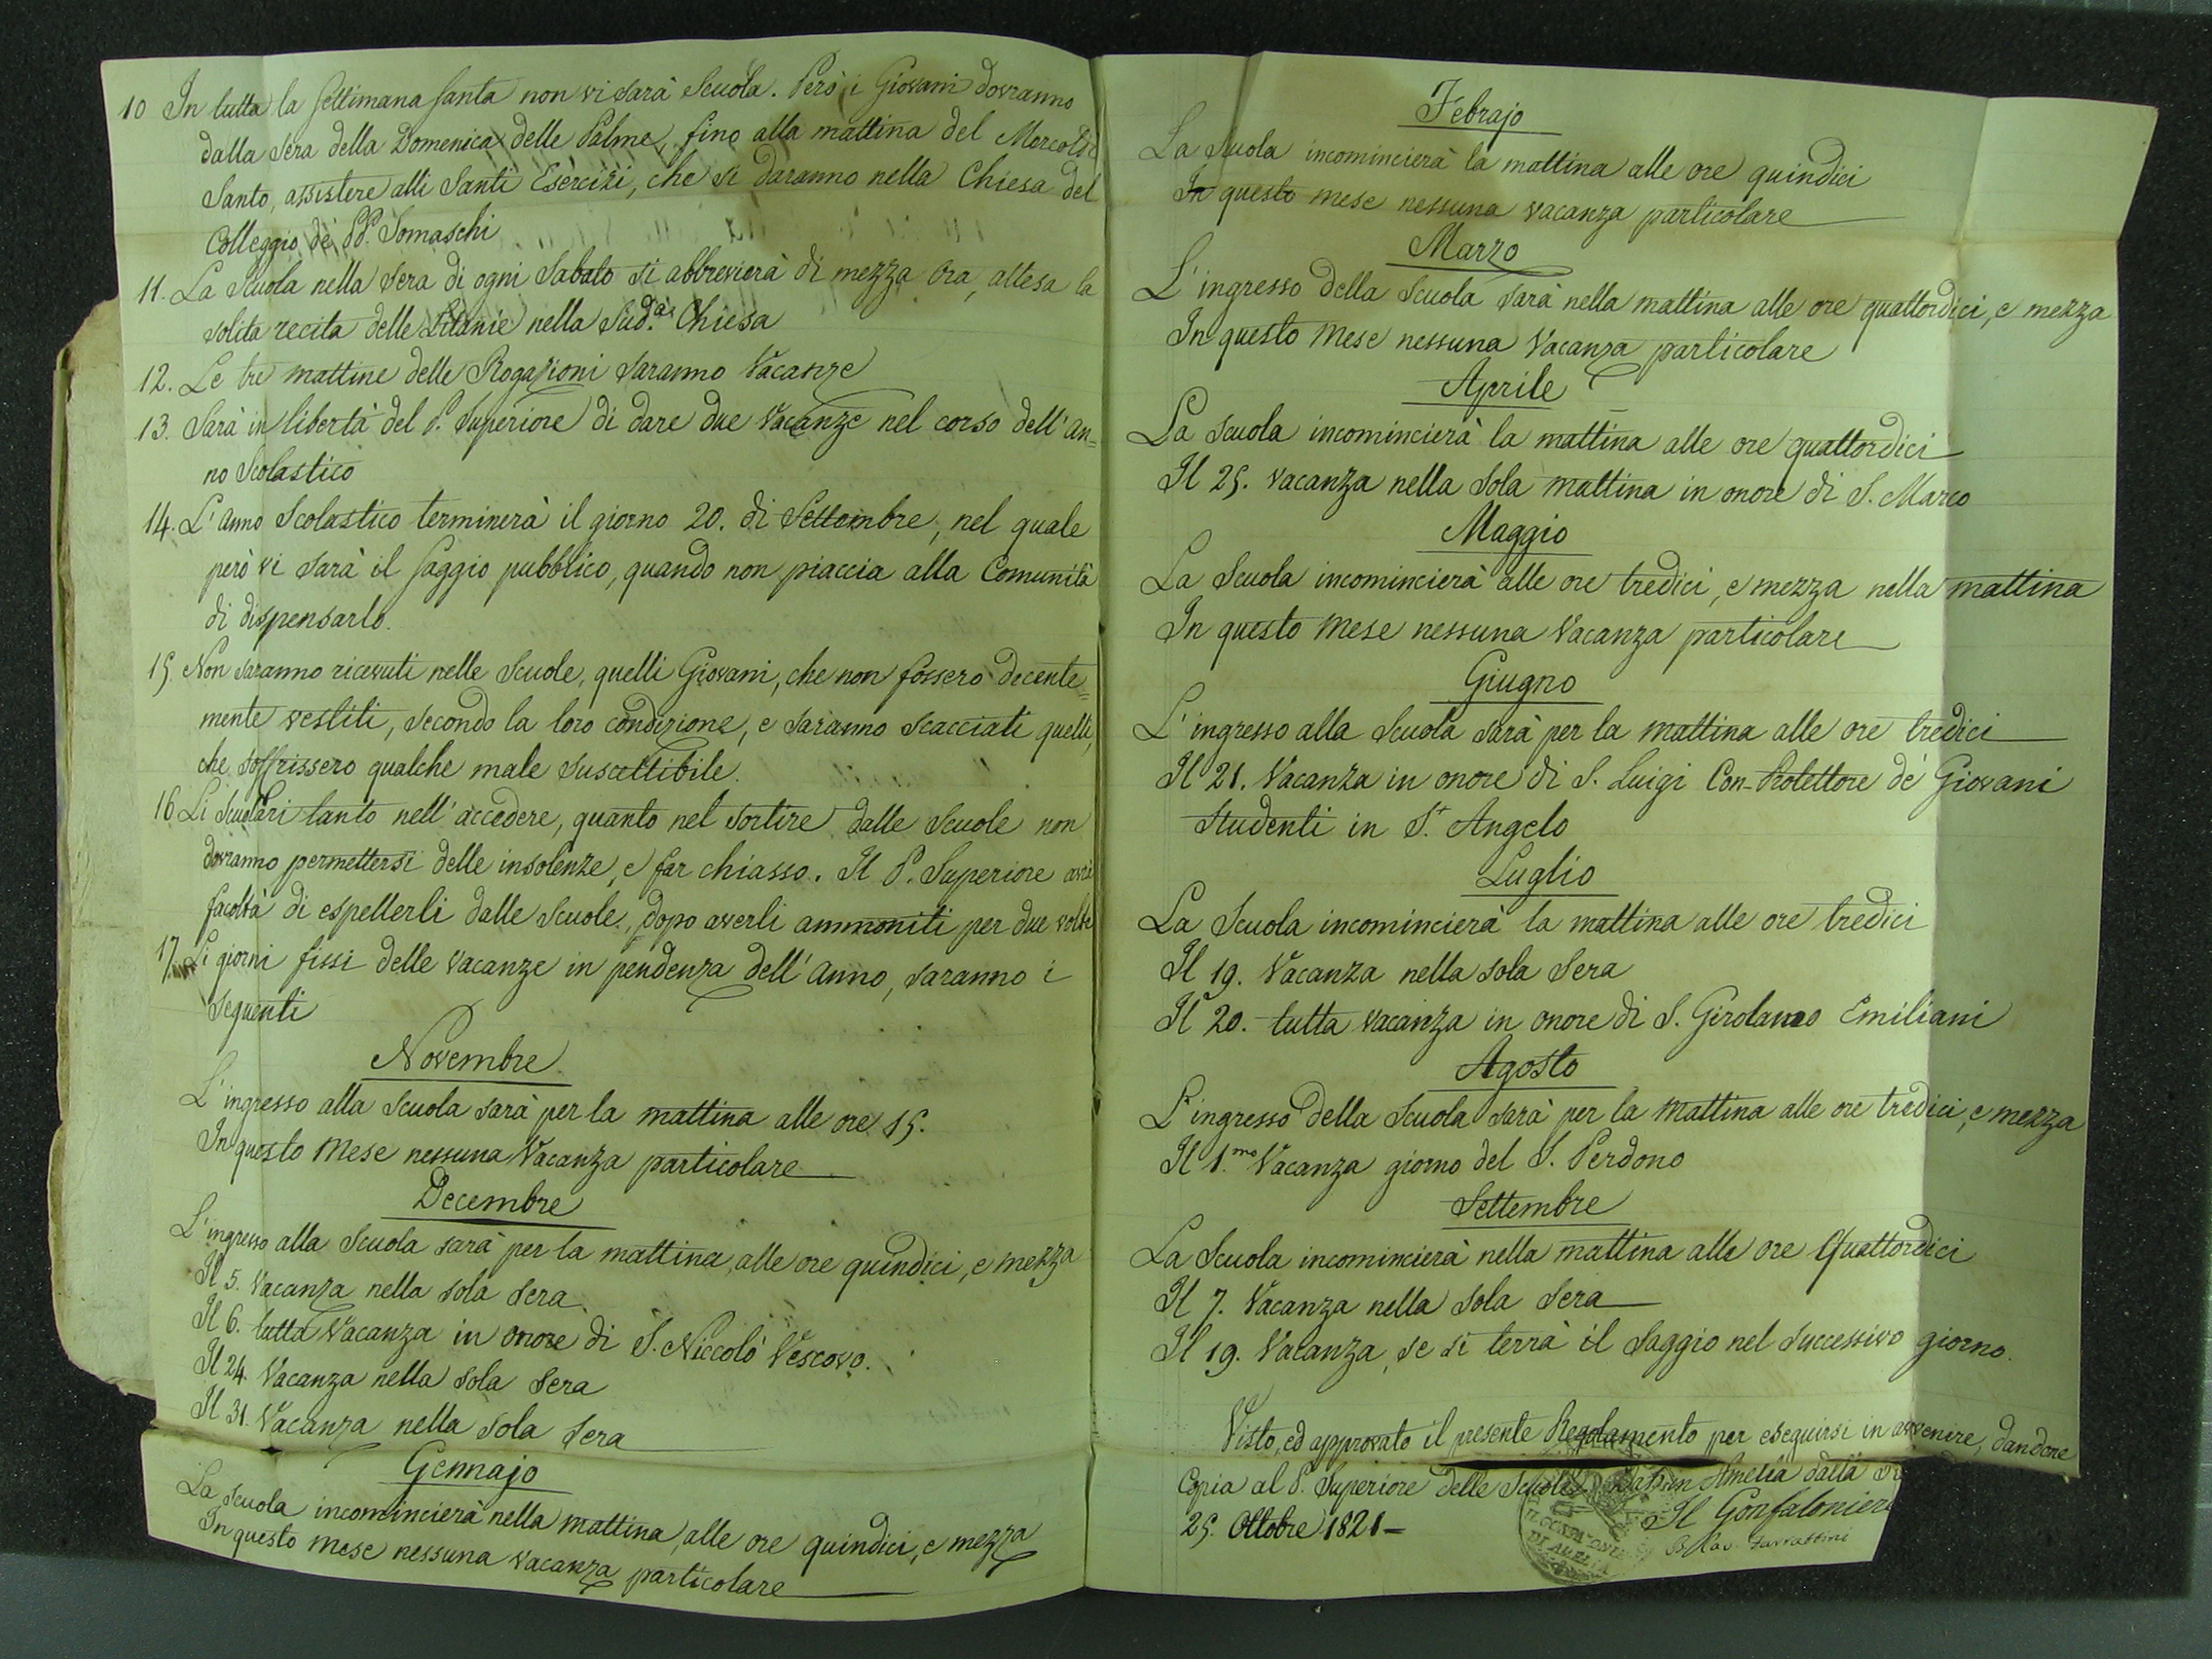 10 In tutta la Settimana Santa non vi sarà Scuola. Però i Giovani dovranno
dalla sera della Domenica delle Palme, fino alla mattina del Mercoldì
Santo, assistere alli Santi Esercizi, che si daranno nella Chiesa del
Colleggio de' PP. Somaschi
11. La Scuola nella sera di ogni Sabato si abbrevierà di mezza ora, attesa la
solita recita delle Litanie nella Sud.a Chiesa
12. Le tre mattine delle Rogazioni saranno Vacanze
13. Sarà in libertà del P. Superiore di dare due Vacanze nel corso dell'an=
no Scolastico
14. L'anno Scolastico terminerà il giorno 20. di Settembre, nel quale
però vi sarà il Saggio pubblico, quando non piaccia alla Comunità
di dispensarlo.
15. Non saranno ricevuti nelle Scuole, quelli Giovani, che non fossero decente=
mente vestiti, secondo la loro condizione, e saranno scacciati quelli,
che soffrissero qualche male suscettibile.
16 Li Scuolari tanto nell'accedere, quanto nel sortire dalle Scuole non
dovranno permettersi delle insolenze, e far chiasso. Il P. Superiore avrà
facoltà di espellerli dalle Scuole, dopo averli ammoniti per due volte
17. Li giorni fissi delle vacanze in pendenza dell'anno, saranno i
seguenti
Novembre
L'ingresso alla Scuola sarà per la mattina alle ore 15.
In questo Mese nessuna Vacanza particolare
Decembre
L'ingresso alla Scuola sarà per la mattina, alle ore quindici, e mezza
Il 5. Vacanza nella sola sera
Il 6. tutta Vacanza in onore di S. Niccolò Vescovo.
Il 24. Vacanza nella sola sera
Il 31. Vacanza nella sola sera
Gennajo
La Scuola incomincierà nella mattina, alle ore quindici, e mezza
In questo mese nessuna vacanza particolare
Febrajo
La Scuola incomincierà la mattina alle ore quindici
In questo mese nessuna vacanza particolare
Marzo
L'ingresso della Scuola sarà nella mattina alle ore quattordici, e mezza
In questo Mese nessuna Vacanza particolare
Aprile
La Scuola incomincierà la mattina alle ore quattordici
Il 25. vacanza nella sola mattina in onore di S. Marco
Maggio
La Scuola incomincierà alle ore tredici, e mezza nella mattina
In questo Mese nessuna Vacanza particolare
Giugno
L'ingresso alla Scuola sarà per la mattina alle ore tredici
Il 21. Vacanza in onore di S. Luigi Con-Protettore de' Giovani
Studenti in S.t Angelo
Luglio
La Scuola incomincierà la mattina alle ore tredici
Il 19. Vacanza nella sola sera
Il 20. tutta vacanza in onore di S. Girolamo Emiliani
Agosto
L'ingresso della Scuola sarà per la Mattina alle ore tredici, e mezza
Il 1.mo Vacanza giorno del S. Perdono
Settembre
La Scuola incomincierà nella mattina alle ore Quattordici
Il 7. Vacanza nella sola sera
Il 19. Vacanza, se si terrà il Saggio nel successivo giorno.
Visto, ed approvato il presente Regolamento per eseguirsi in avvenire, dandone
Copia al P. Superiore delle Scuole. in Amelia dalla
25. Ottobre 1821 -
Il Gonfaloniere
IL GONFALONIERE
DI AMELIA